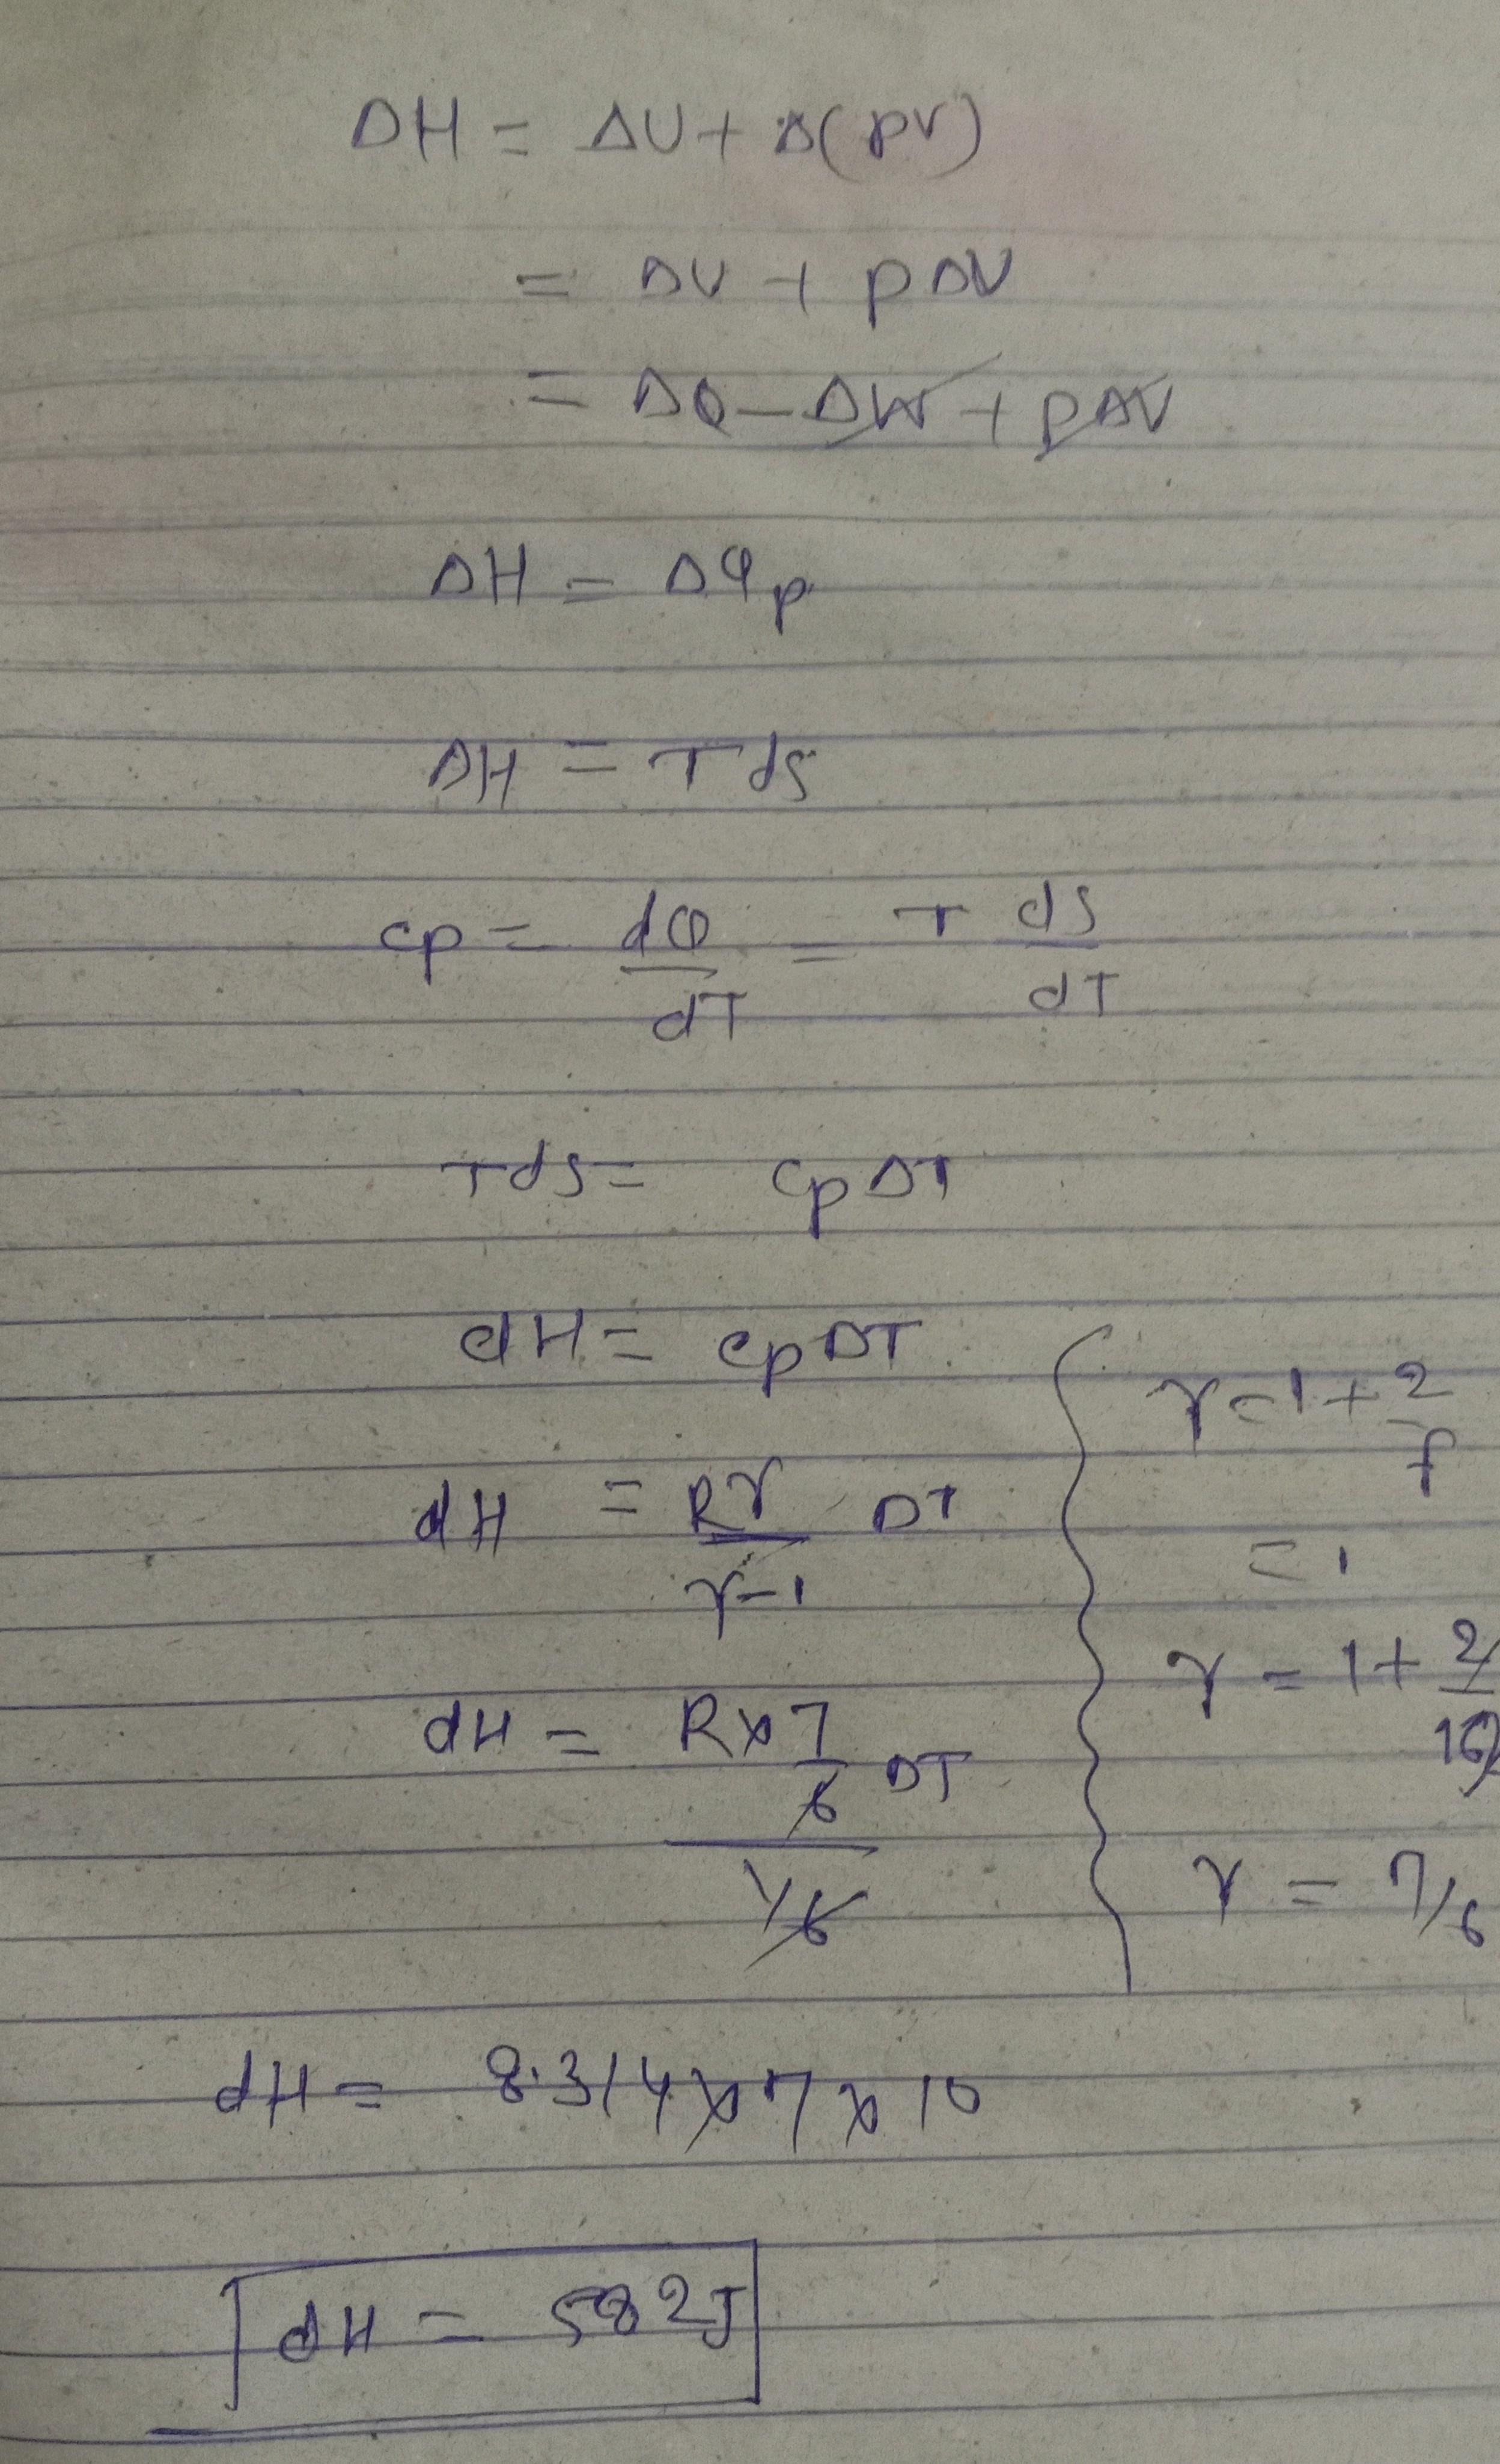 ΔH = ΔU + Δ(PV)
= ΔU + PΔV
= ΔQ - ΔW + PΔV
ΔH = ΔQp
ΔH = Tds
cp = dQ/dT = T ds/dT
Tds = cpΔT
dH = cpΔT
dH = Rγ/γ-1 ΔT
dH = R×7/6 / 1/6 ΔT
γ = 1 + 2/f
= 1
γ = 1 + 2/12
γ = 7/6
dH = 8.314 × 7 × 10
dH = 582J